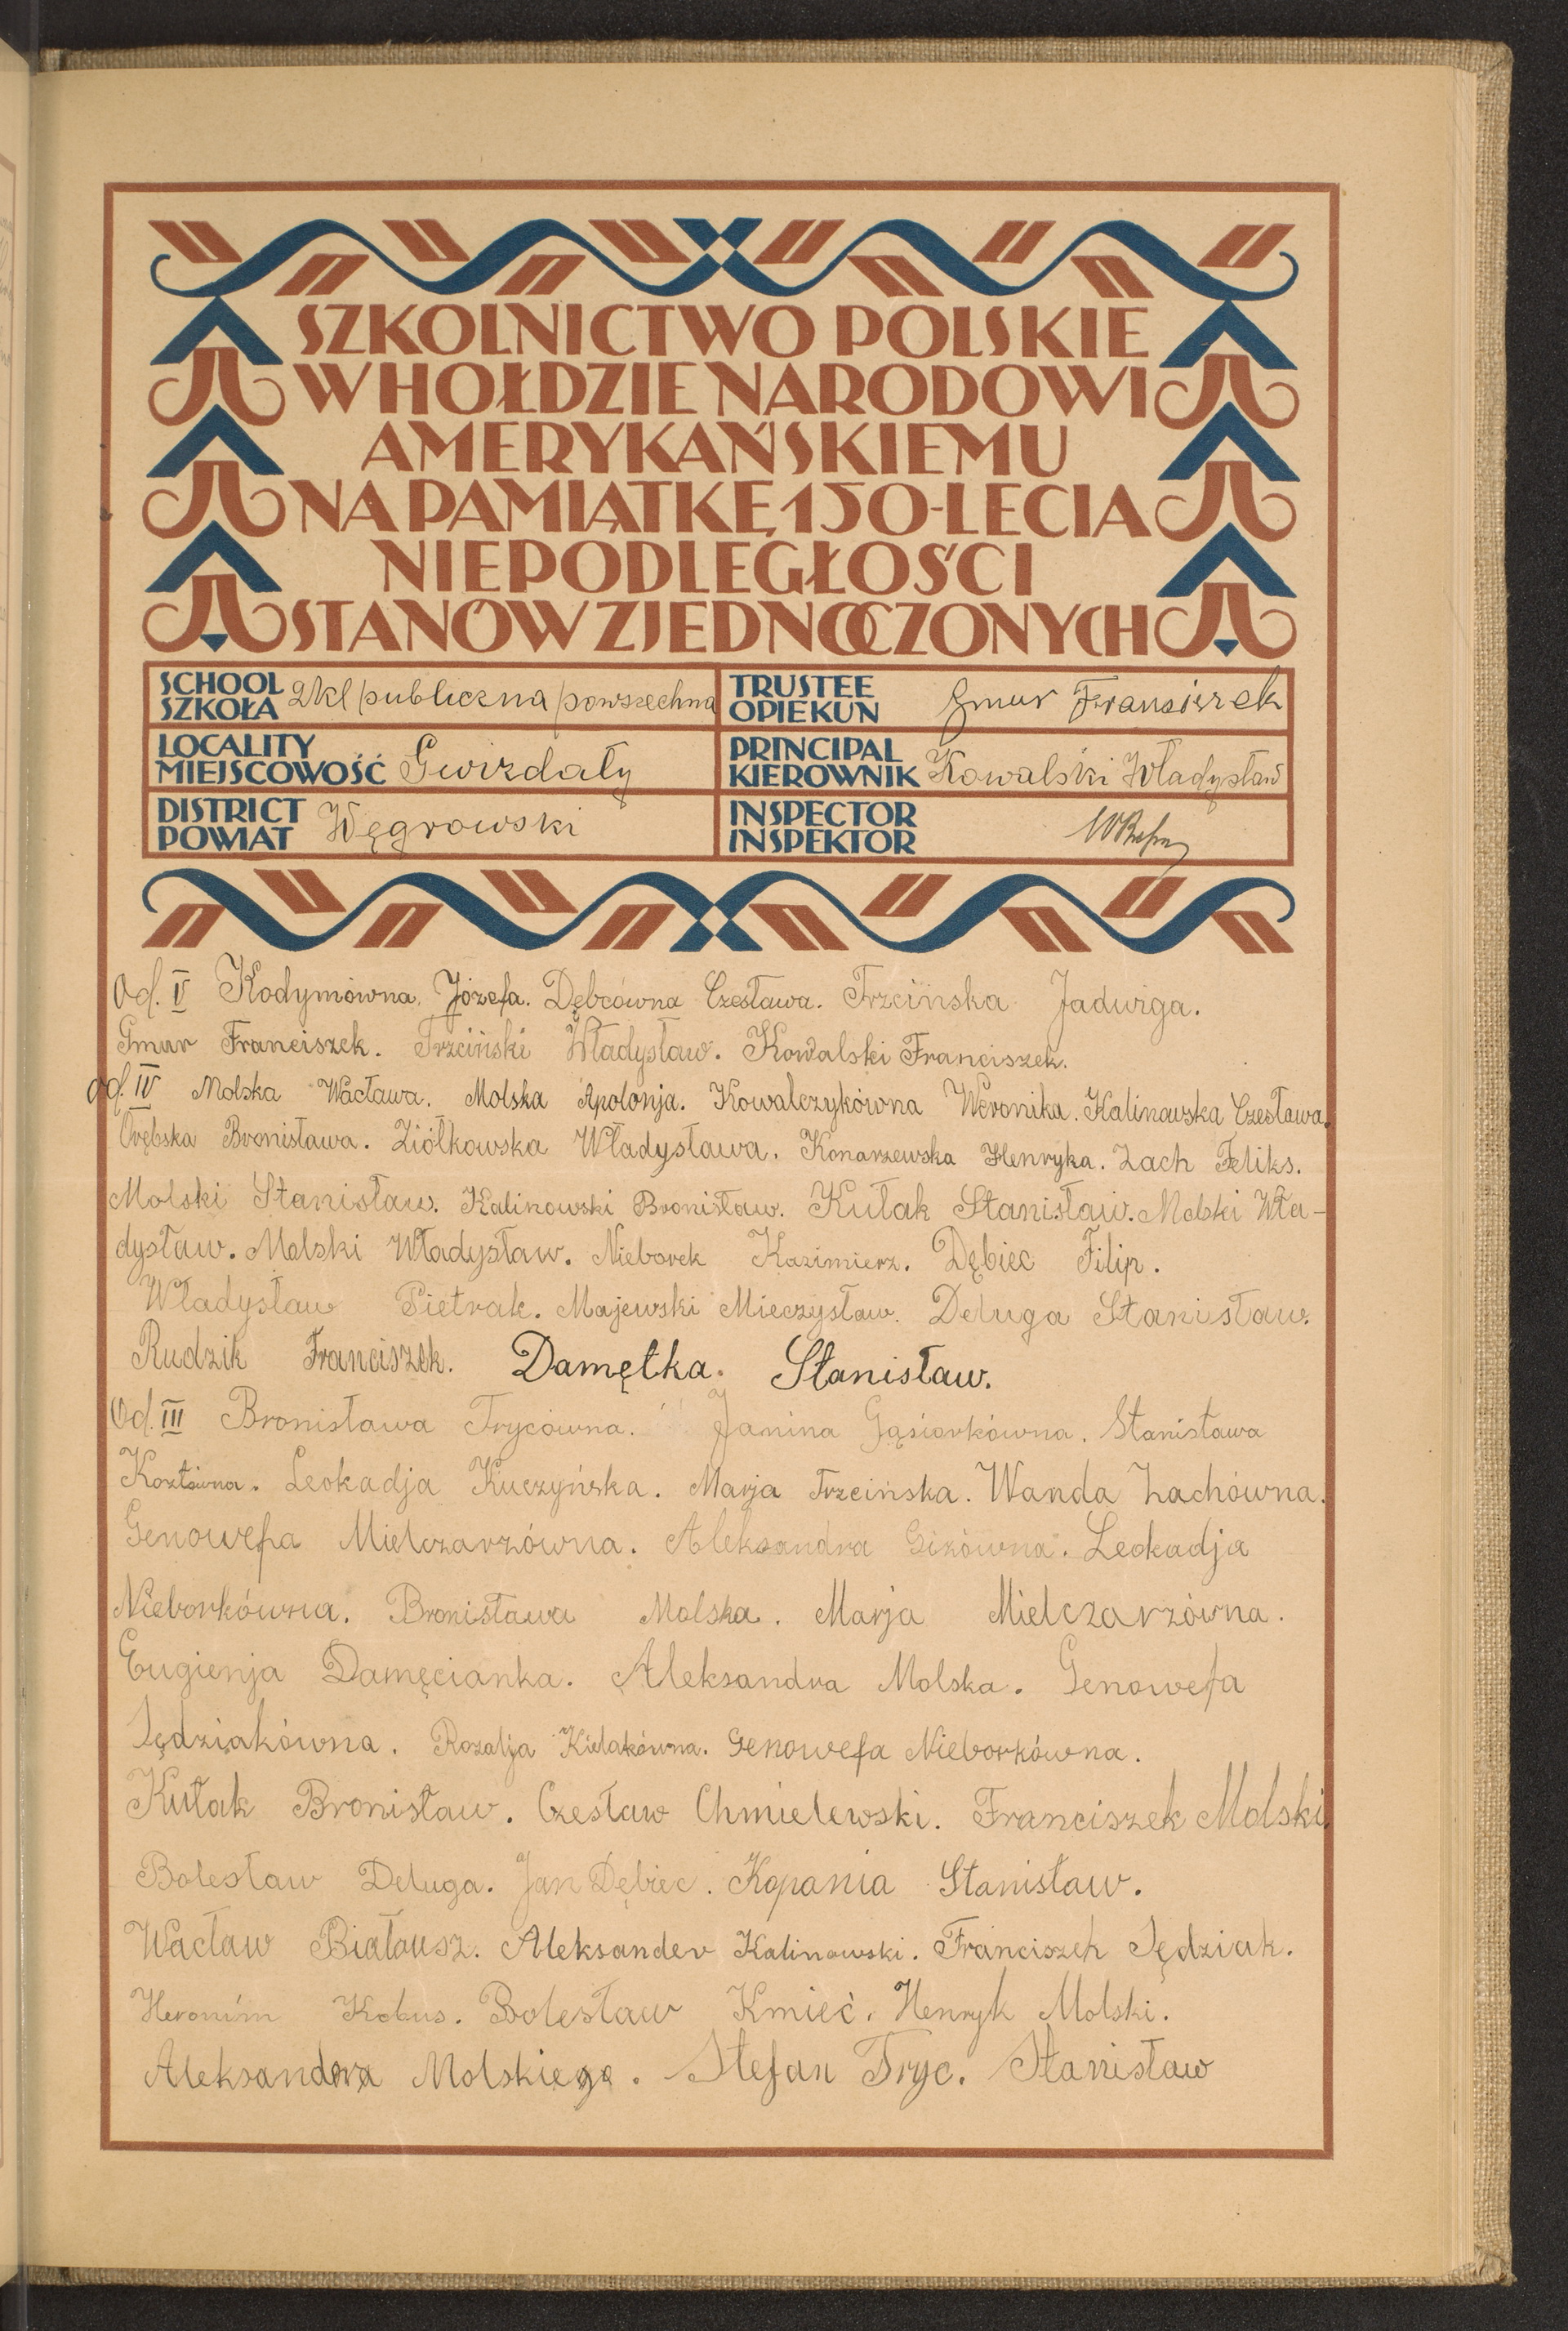 SZKOLNICTWO POLSKIE
W HOŁDZIE NARODOWI
AMERYKAŃSKIEMU
NA PAMIĄTKĘ 150-LECIA
NIEPODLEGŁOŚCI
STANÓW ZJEDNOCZONYCH
SCHOOL SZKOŁA 2kl publiczna powszechna
TRUSTEE OPIEKUN Gmur Fransiszek
LOCALITY MIEJSCOWOŚĆ Gwizdały
PRINCIPAL KIEROWNIK Kowalski Władysław
DISTRICT POWIAT Węgrowski
INSPECTOR INSPEKTOR
Od. V Kodymówna Józefa. Dębcówna Czesława. Trzcińska Jadwiga.
Gmur Franciszek. Trzciński Władysław. Kowalski Franciszek.
od. IV Molska Wacława. Molska Apolonja. Kowalczykówna Weronika. Kalinowska Czesława.
Orębska Bronisława. Ziółkowska Władysława. Konarzewska Henryka. Zach Feliks.
Molski Stanisław. Kalinowski Bronisław. Kułak Stanisław. Molski Wła-
dysław. Molski Władysław. Nieborek Kazimierz. Dębiec Filip.
Władysław Pietrak. Majewski Mieczysław. Deluga Stanisław.
Rudzik Franciszek. Damętka. Stanisław.
Od. III Bronisława Trycówna. Janina Gąsiorkówna. Stanisława
Kozłówna. Leokadja Kuczyńska. Marja Trzcińska. Wanda Zachówna.
Genowefa Mielczarzówna. Aleksandra Gizówna. Leokadja
Nieborkówna. Bronisława Molska. Marja Mielczarzówna.
Eugienja Damęcianka. Aleksandra Molska. Genowefa
Sędziakówna. Rozalja Kielakówna. Genowefa Nieborkówna.
Kułak Bronisław. Czesław Chmielewski. Franciszek Molski.
Bolesław Deluga. Jan Dębiec. Kopania Stanisław.
Wacław Białousz. Aleksander Kalinowski. Franciszek Sędziak.
Heronim Kobus. Bolesław Kmieć. Henryk Molski.
Aleksandra Molskiego. Stefan Tryc. Stanisław